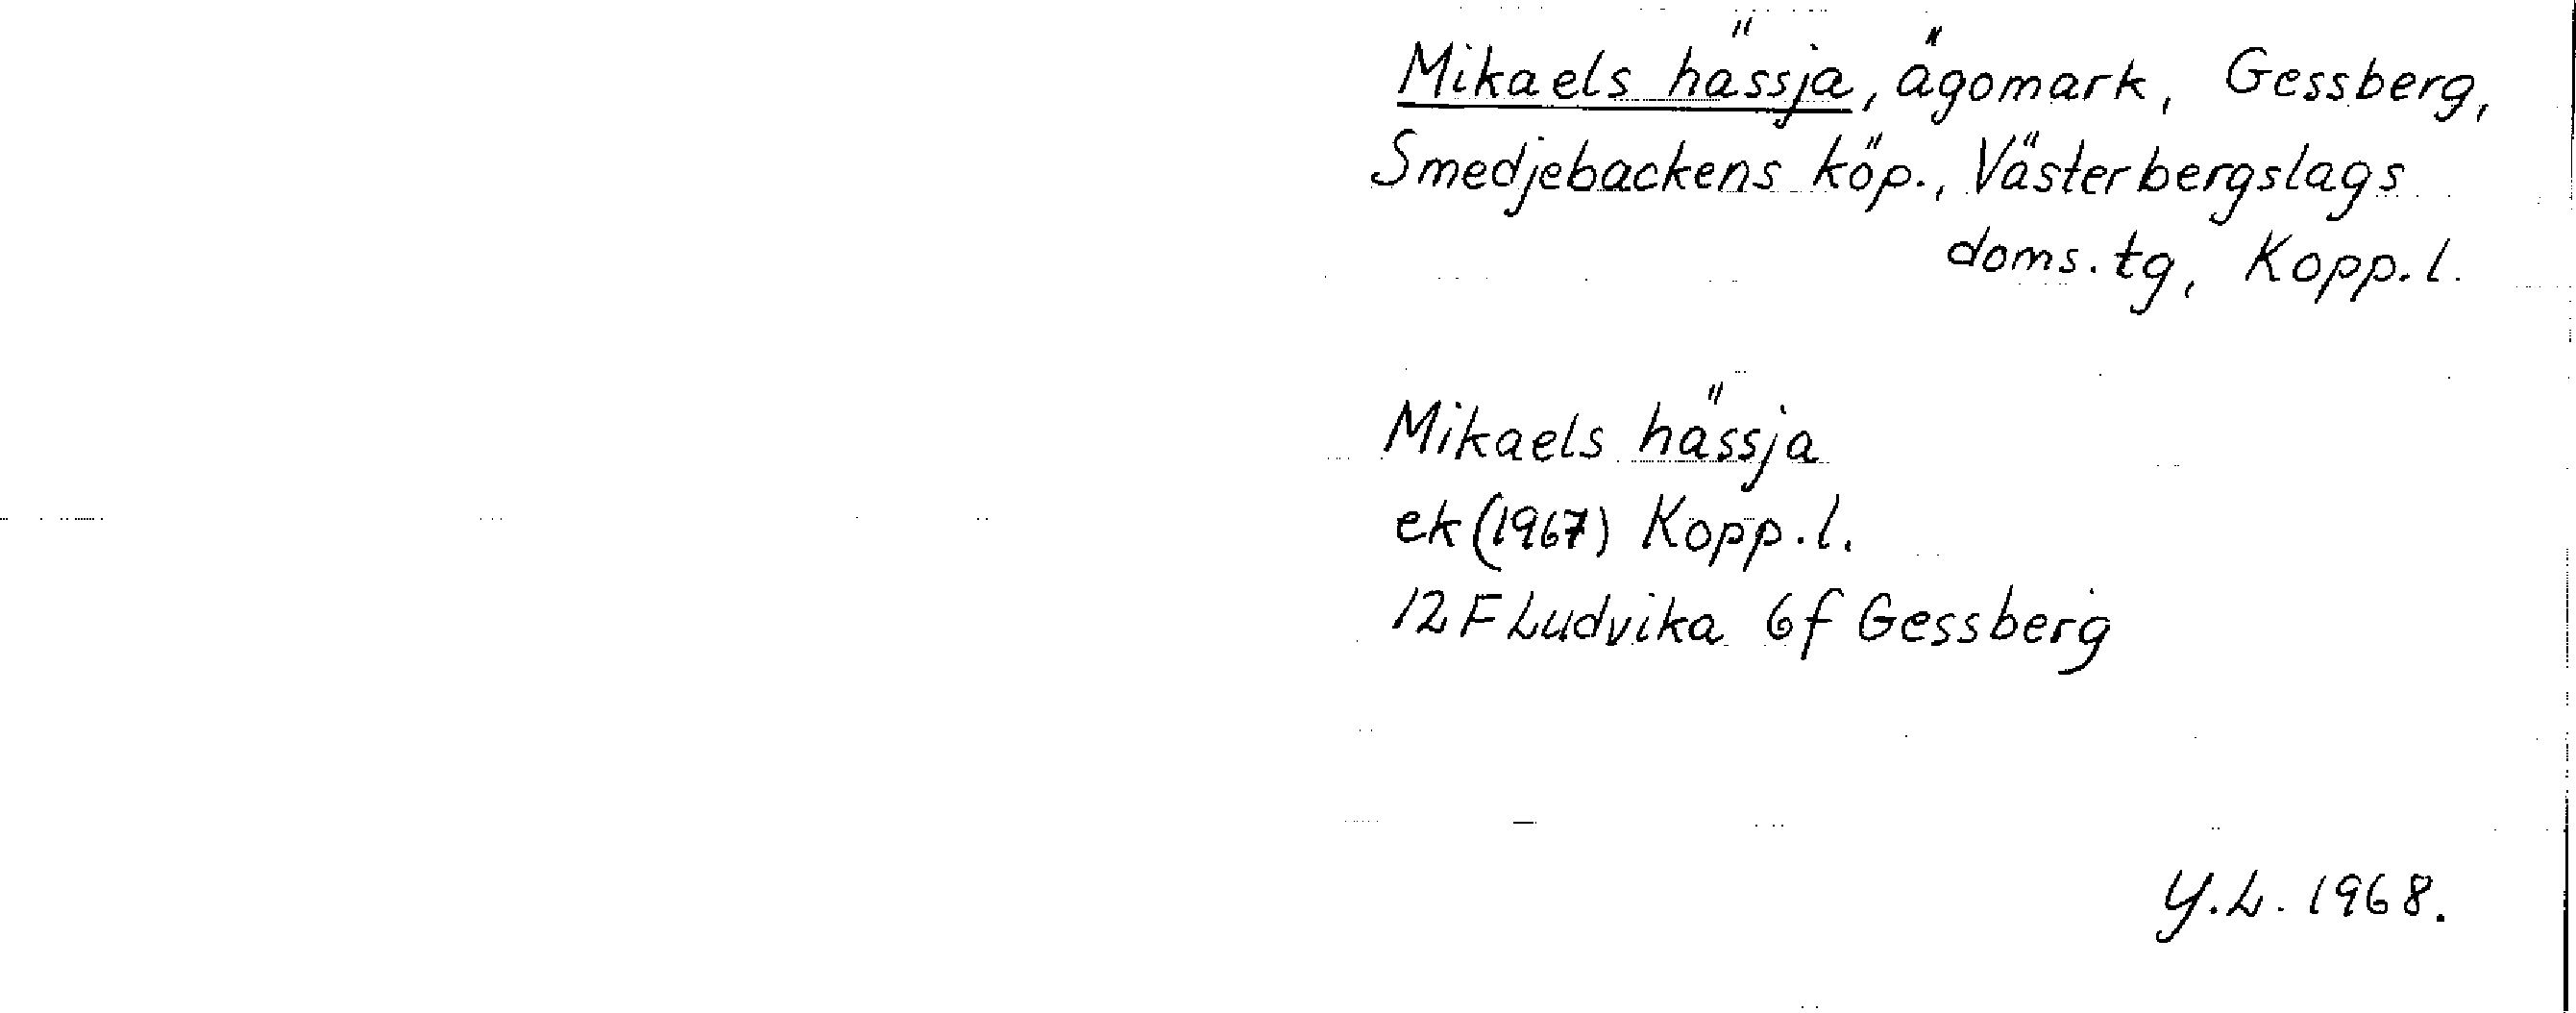 Mikaels hässja, ägomark, Gessberg,
Smedjebackens köp., Västerbergslags
doms.tg, Kopp.l.
Mikaels hässja
ek(1967) Kopp.l.
12F Ludvika 6f Gessberg
Y.L. 1968.